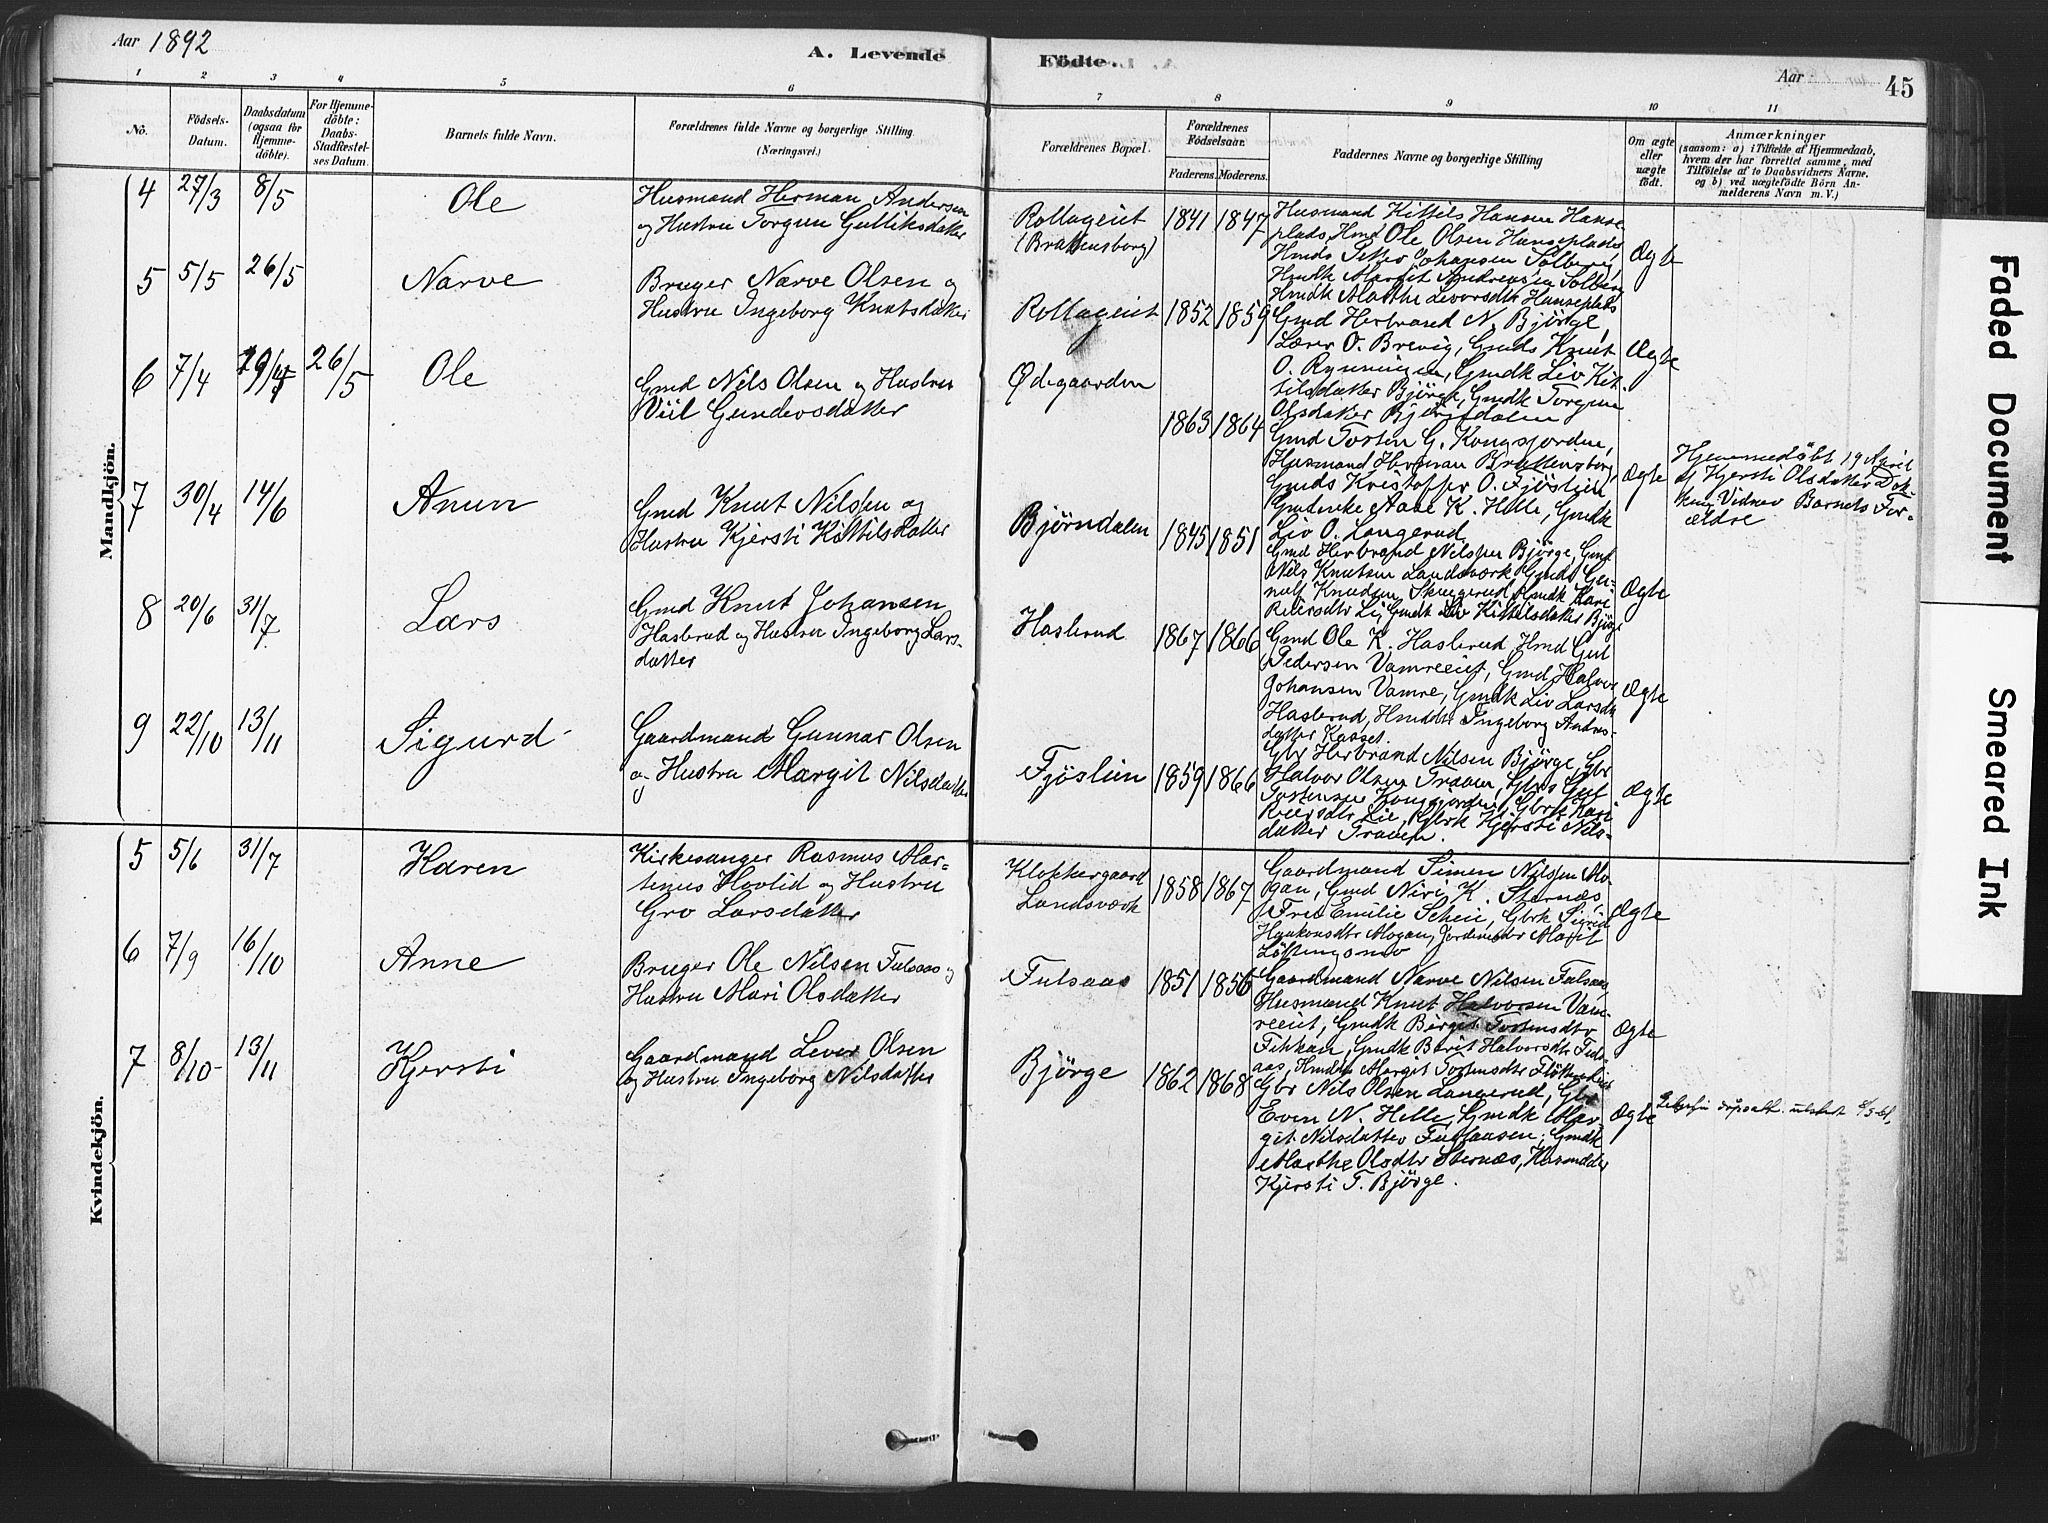 Aar 1892
A. Levende
Fødte.
Aar
45
1 2 3 4 5 6 7 8 9 10 11
No.
Födsels-
Datum.
Daabsdatum
(ogsaa for
Hjemme-
döbte).
For Hjemme-
döbte:
Daabs-
Stadfæstel-
ses Datum.
Barnets fulde Navn.
Forældrenes fulde Navne og borgerlige Stilling
(Næringsvei.)
Forældrenes Bopæl.
Forældrenes
Födselsaar.
Faderens. Moderens.
Faddernes Navne og borgerlige Stilling
Om ægte
eller
uægte
født.
Anmærkninger
(saasom: a) i Tilfælde af Hjemmedaab,
hvem der har forrettet samme, med
Tilföielse af to Daabsvidners Navne.
og b) ved uægtefödte Börn An-
melderens Navn m.V.)
Mandkjön.
4 27/3 8/5 Ole
Husmand Herman Andersen
og Hustru Torgun Gulliksdatter
Rollageiet
(Brattensborg)
1841 1847
Husmand Kittils Hansen Hanse-
plads, Hmd Ole Olsen Hanseplads
Hmds Johansen Solberg,
Hmdk Margit Andreasen Solberg
Hmdk Marthe Leversdtr Hanseplads
Ægte
5 5/5 26/5 Narve
Bruger Narve Olsen og
Hustru Ingeborg Knutsdatter
Rollageiet
1852 1859
Gmd Herbrand N. Bjørge,
Lærer O. Brevig, Gmds Knut
O. Rynningen, Gmdk Liv Kit-
tilsdatter Bjørge, Gmdk Torgun
Olsdatter Bjørndalen
Ægte
6 7/4 19/4 26/5 Ole
Gmd Nils Olsen og Hustru
Viil Gundersdatter
Ødegaarden
1863 1864
Gmd Tosten G. Kongsjorden,
Husmand Herman Brattensborg,
Gmds Kristoffer O. Fjøslien
Gmdenke Aase K. Helle, Gmdk
Liv O. Langerud
Ægte
Hjemmedøbt 19 April
af Kjersti Olsdatter Dok-
ken, Vidner Barnets For-
ældre
7 30/4 14/6 Anun
Gmd Knut Nilsen og
Hustru Kjersti Kittilsdatter
Bjørndalen
1845 1851
Gmd Herbrand Nilssen Bjørge, Gmd
Nils Knutsen Landsværk, Gmds Gun-
nulf Knudsen Skugerud, Gmdk Kari
Reiersdtr Li, Gmdk Liv Kittelsdatter Bjørge
Ægte
8 20/6 31/7 Lars
Gmd Knut Johansen
Haslerud og Hustru Ingeborg Lars-
datter
Haslerud
1867 1866
Gmd Ole K. Haslerud, Hmd Gul
Pedersen Vamreeiet, Gmd Halvor
Johansen Vamre, Gmdk Liv Larsdtr
Haslerud, Hmddtr Ingeborg Anders-
datter Kasset.
Ægte
9 22/10 13/11 Sigurd
Gaardmand Gunnar Olsen
og Hustru Margit Nilsdatter
Fjøslien
1859 1866
Gbr Herbrand Nilsen Bjørge, Gbr
Halvor Olsen Traaen, Gbrs Gul
Tostensen Kongsjorden, Gbrk Kari
Reiersdtr Lie, Gbrk Kjersti Nils-
datter Traaen.
Ægte
Kvindekjön.
5 5/6 31/7 Karen
Kirkesanger Rasmus Mar-
tinus Hovlid og Hustru
Gro Larsdatter
Klokkergaard
Landsværk
1858 1867
Gaardmand Simen Nilsen Mo-
gan, Gmd Niri K. Sternæs,
Fru Emilie Scheie, Gbrk Sigrid
Haakonsdtr Mogan, Jordmoder Marit
Løttingsmo
Ægte
6 7/9 16/10 Anne
Bruger Ole Nilsen Fulsaas og
Hustru Mari Olsdatter
Fulsaas
1851 1856
Gaardmand Narve Nilsen Fulsaas
Husmand Knut Halvorsen Vam-
reeiet, Gmdk Birgit Tostensdtr
Fikkan, Gmdk Berit Halvorsdtr Fuls-
aas, Hmddtr Margit Tostensdtr
Ægte
7 8/10 13/11 Kjersti
Gaardmand Lever Olsen
og Hustru Ingeborg Nilsdatter
Bjørge
1862 1868
Gbr Nils Olsen Langerud, Gbr
Even N. Helle, Gmdk Mar-
git Nilsdatter Fulsaasen, Gmdk
Marthe Olsdtr Sternæs, Husmddtr
Kjersti T. Bjørge.
Ægte
dåpsatt. utstedt
Faded Document
Smeared Ink